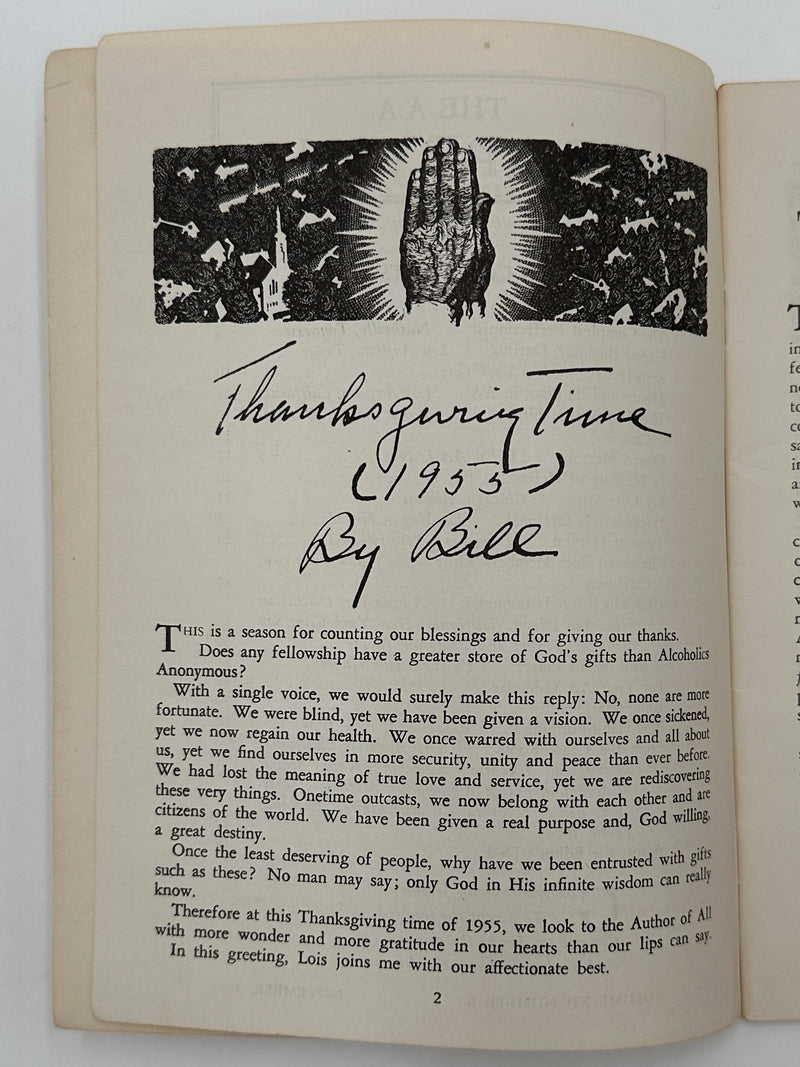 Thanksgiving Time
(1955)
By Bill
THIS is a season for counting our blessings and for giving our thanks.
Does any fellowship have a greater store of God's gifts than Alcoholics
Anonymous?
With a single voice, we would surely make this reply: No, none are more
fortunate. We were blind, yet we have been given a vision. We once sickened,
yet we now regain our health. We once warred with ourselves and all about
us, yet we find ourselves in more security, unity and peace than ever before.
We had lost the meaning of true love and service, yet we are rediscovering
these very things. Onetime outcasts, we now belong with each other and are
citizens of the world. We have been given a real purpose and, God willing,
a great destiny.
Once the least deserving of people, why have we been entrusted with gifts
such as these? No man may say; only God in His infinite wisdom can really
know.
Therefore at this Thanksgiving time of 1955, we look to the Author of All
with more wonder and more gratitude in our hearts than our lips can say.
In this greeting, Lois joins me with our affectionate best.
2